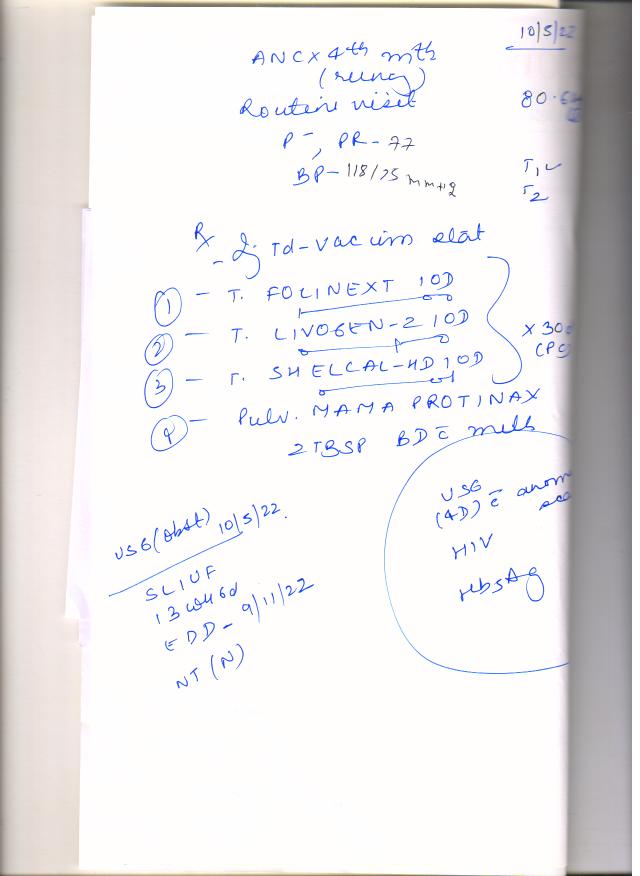 10/5/22
ANC x 4th mth
(runng)
Routine visit
80.6
P -, PR - 77
BP - 118/75 mmHg
T1 ✓
T2
Rx
- Inj Td-vaccine stat
① - T. FOLINEXT 1OD
② - T. LIVOGEN-Z 1OD
③ - T. SHELCAL-HD 1OD
x 30
(PC)
④ - Pulv. MAMA PROTINAX
2 TBSP BD c̄ milk
USG
(4D) c̄ anom
HIV
HbsAg
USG (Obst) 10/5/22.
SLIUF
13w+6d
EDD - 9/11/22
NT (N)